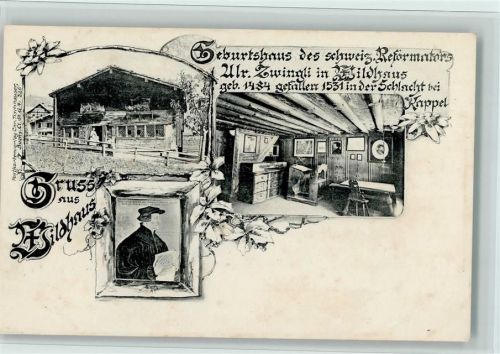 Geburtshaus des schweiz. Reformators
Ulr. Zwingli in Wildhaus
geb. 1484 gefallen 1531 in der Schlacht bei
Kappel
Gruss
aus
Wildhaus